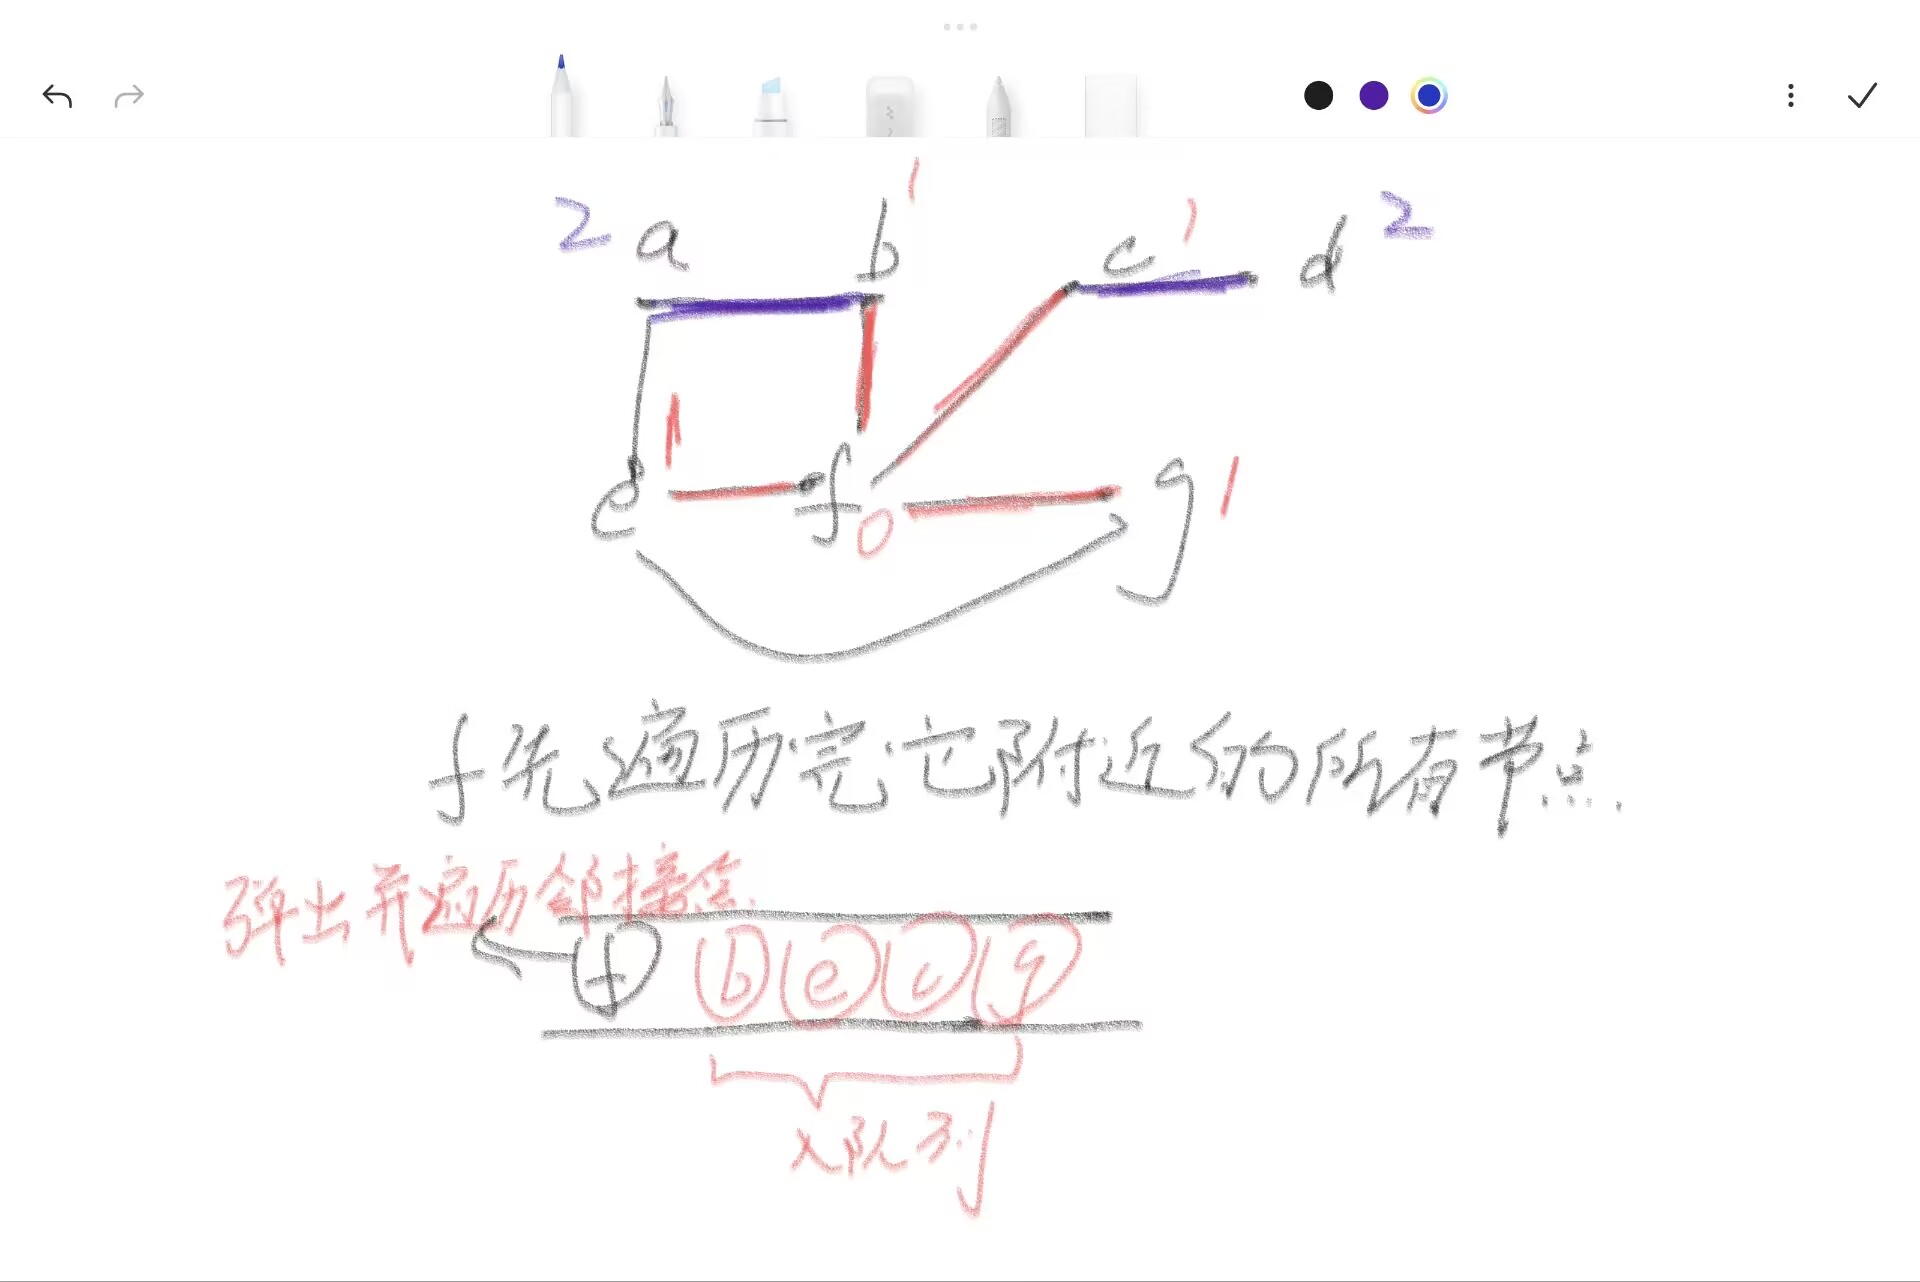 1
2 a b c 1 d 2
1
e f 0 g 1
f先遍历完它附近的所有节点.
弹出并遍历邻接点.
f b e c g
入队列